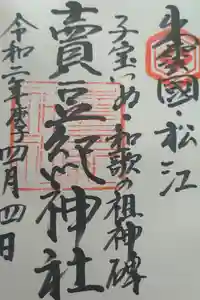 出雲國・松江
子宝いめ・和歌の祖神碑
賣豆紀神社
令和二年庚子四月四日